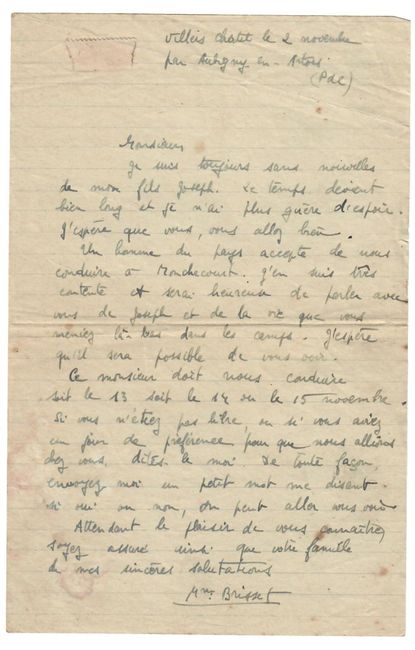 Villers Chatel le 2 novembre
par Aubigny en-Artois
(PdC)
Monsieur
Je suis toujours sans nouvelles
de mon fils Joseph. Le temps devient
bien long et je n'ai plus guère d'espoir.
J'espère que vous, vous allez bien.
Un homme du pays accepte de nous
conduire à Monchecourt. J'en suis très
contente et serai heureuse de parler avec
vous de Joseph et de la vie que vous
meniez là-bas dans les camps. J'espère
qu'il sera possible de vous voir.
Ce monsieur doit nous conduire
soit le 13 soit le 14 ou le 15 novembre.
Si vous n'étiez pas libre, ou si vous aviez
un jour de préférence pour que nous allions
chez vous, dites-le moi. De toute façon,
envoyez moi un petit mot me disant
si oui ou non, on peut aller vous voir
Attendant le plaisir de vous connaître,
soyez assuré ainsi que votre famille
de mes sincères salutations
Mme Brisset